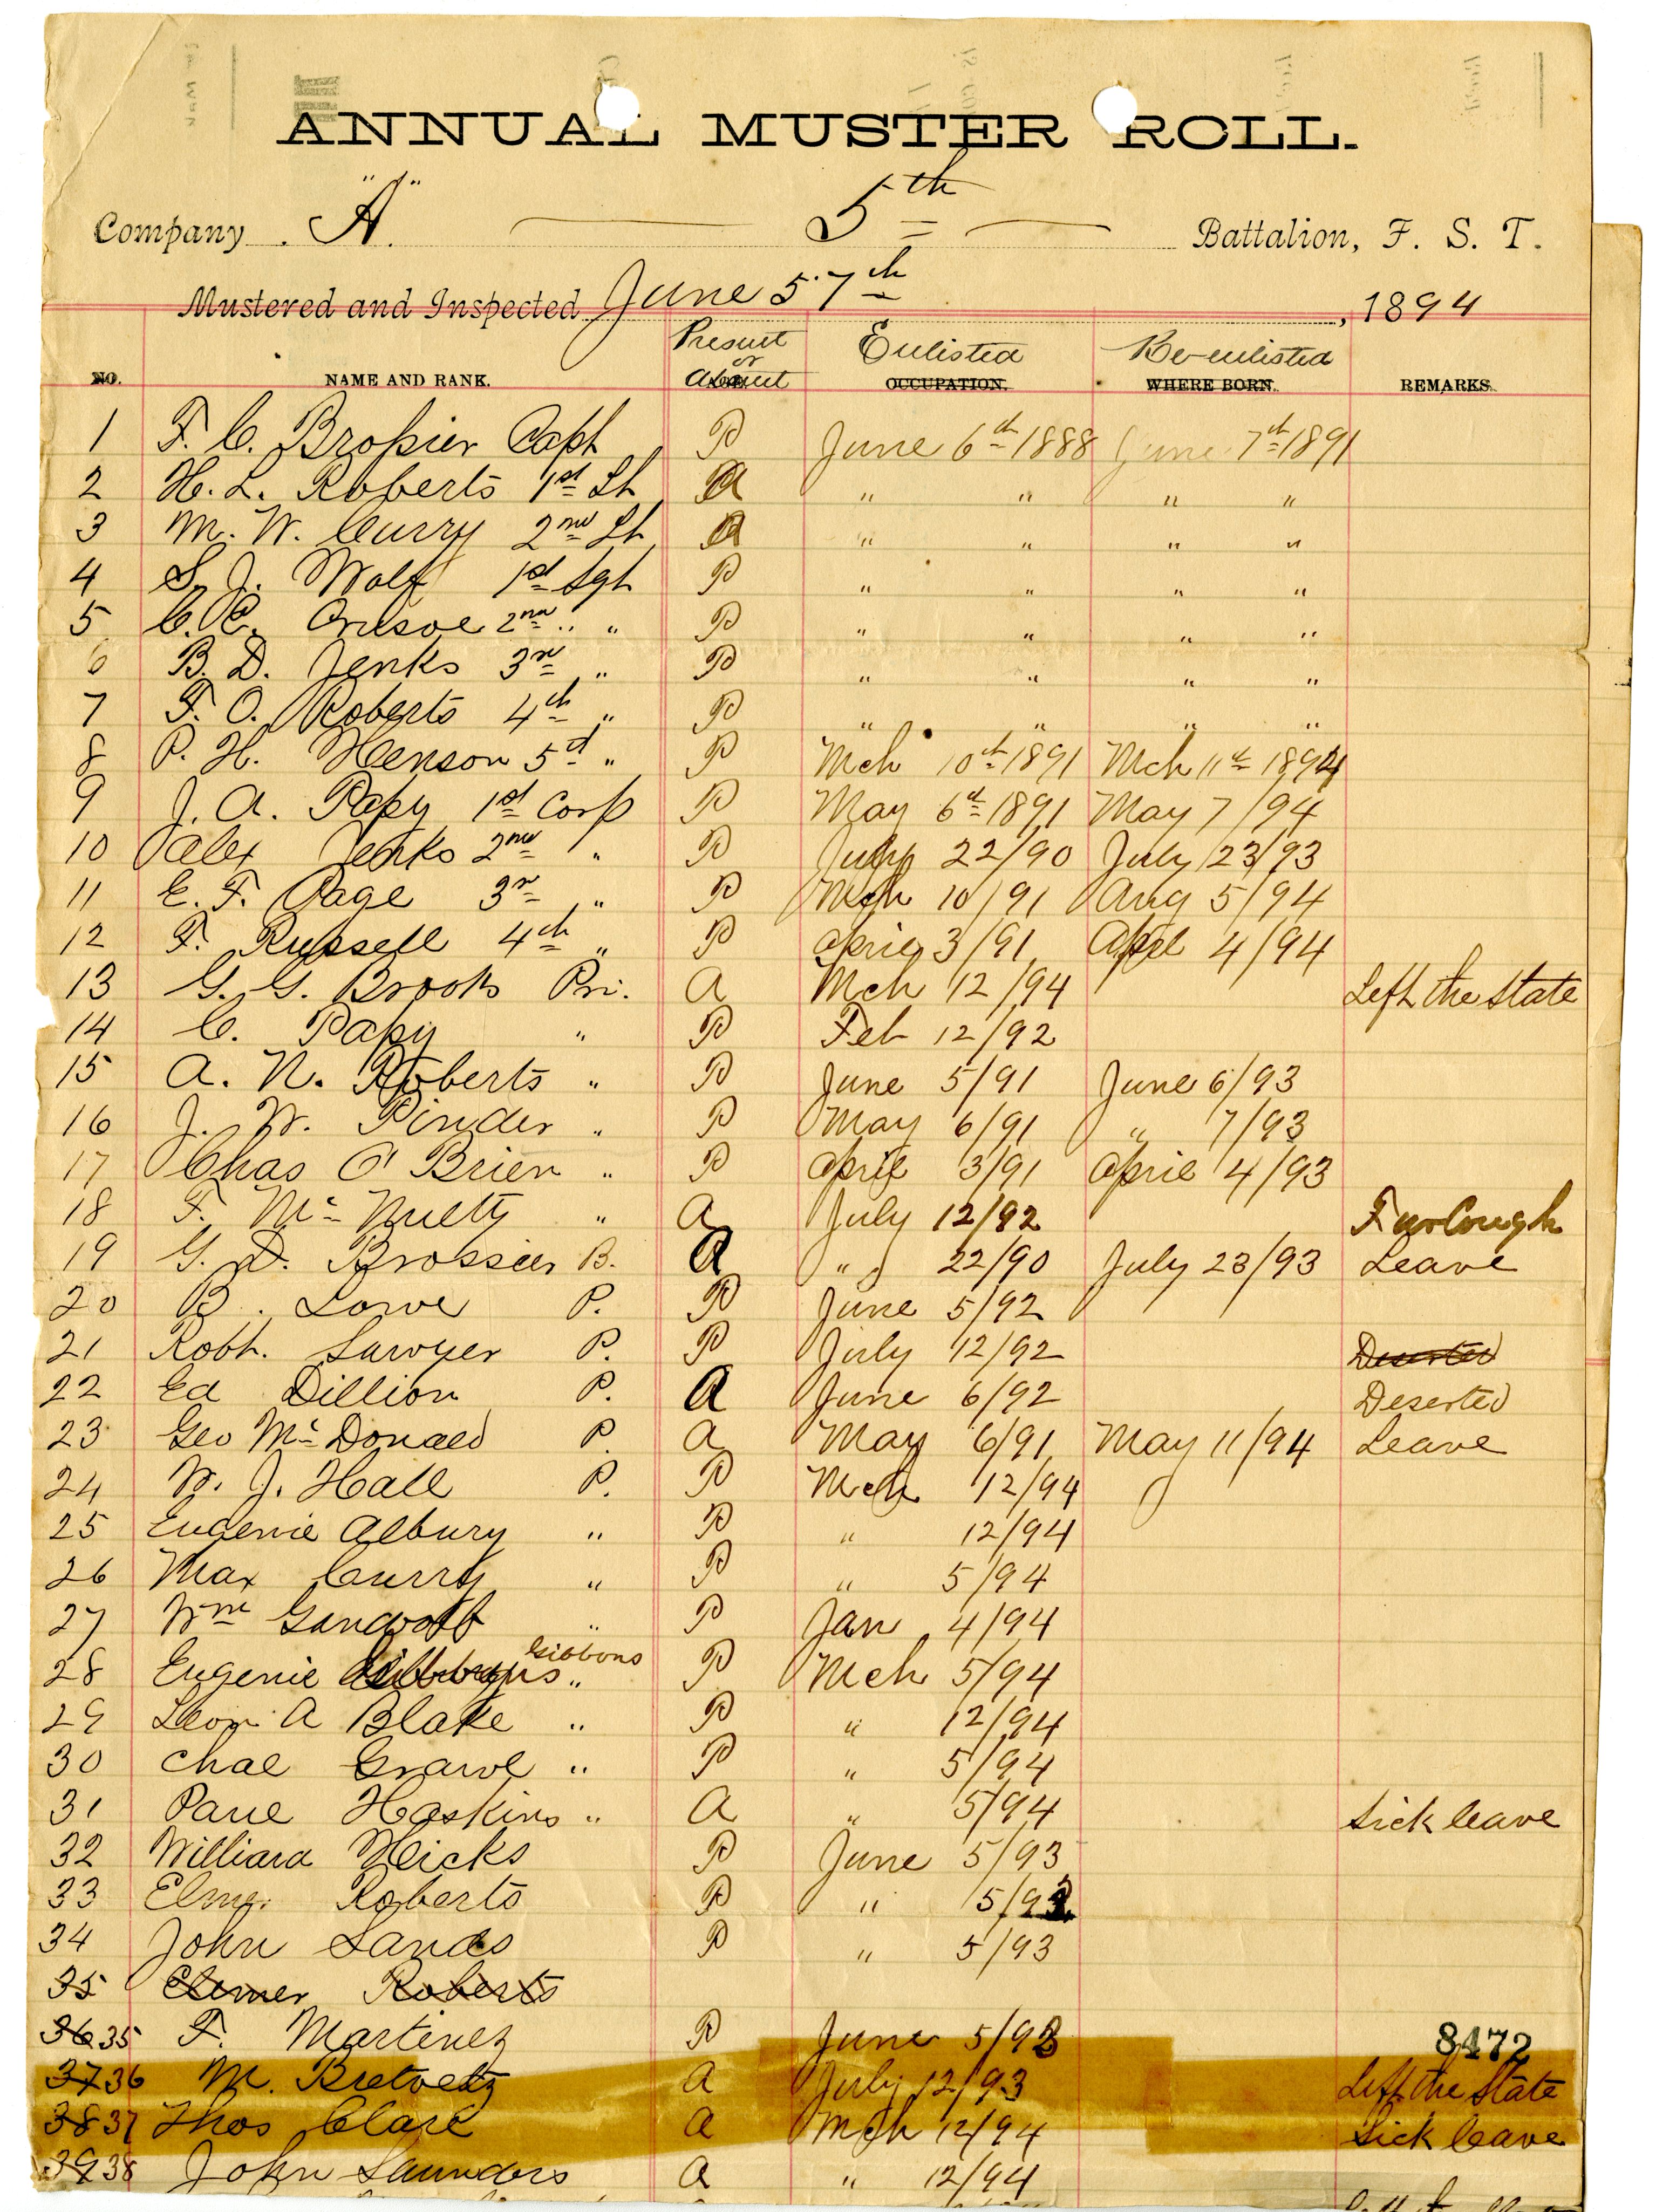 ANNUAL MUSTER ROLL.
Company "A". 5th Battalion, F. S. T.
Mustered and Inspected June 5 7th, 1894
NO. NAME AND RANK. Present or Absent Enlisted OCCUPATION. Re-enlisted WHERE BORN. REMARKS.
1 F. C. Brossier Capt P June 6th 1888 June 7th 1891
2 H. L. Roberts 1st Lt A " " " "
3 M. W. Curry 2nd Lt " " " "
4 S. J. Wolf 1st Sgt P " " " "
5 C. E. 2nd " " P " " " "
6 B. D. Jenks 3rd " P " " " "
7 F. O. Roberts 4th " P " " " "
8 P. H. Henson 5th " P Mch 10th 1891 Mch 11th 1894
9 J. A. Papy 1st Corp P May 6th 1891 May 7/94
10 Alex Jenks 2nd " P July 22/90 July 23/93
11 E. F. Page 3rd " P Mch 10/91 Aug 5/94
12 F. Russell 4th " P April 3/91 April 4/94
13 G. G. Brooks Pri. A Mch 12/94 Left the State
14 C. Papy " P Feb 12/92
15 A. N. Roberts " P June 5/91 June 6/93
16 J. W. Pinder " P May 6/91 " 7/93
17 Chas O'Brien " P April 3/91 April 4/93
18 F. McNulty " A July 12/92 Furlough
19 G. D. Brossier B. A " 22/90 July 23/93 Leave
20 B. Lowe P. P June 5/92
21 Robt. Sawyer P. P July 12/92 Deserted
22 Ed Dillion P. A June 6/92 Deserted
23 Geo McDonald P. A May 6/91 May 11/94 Leave
24 W. J. Hall P. P Mch 12/94
25 Eugenie Albury " P " 12/94
26 Max Curry " P " 5/94
27 Wm " P Jan 4/94
Gibbons
28 Eugenie " P Mch 5/94
29 Leon A Blake " P " 12/94
30 " P " 5/94
31 Haskins " A " 5/94 Sick leave
32 Willard Hicks P June 5/93
33 Elmr. Roberts P " 5/93
34 John Sands P " 5/93
35 Elmer Roberts
36 35 F. Martinez P June 5/93
8472
37 36 M. A July 12/93 Left the State
38 37 Thos Clark A Mch 12/94 Sick leave
39 38 John Saunders A " 12/94